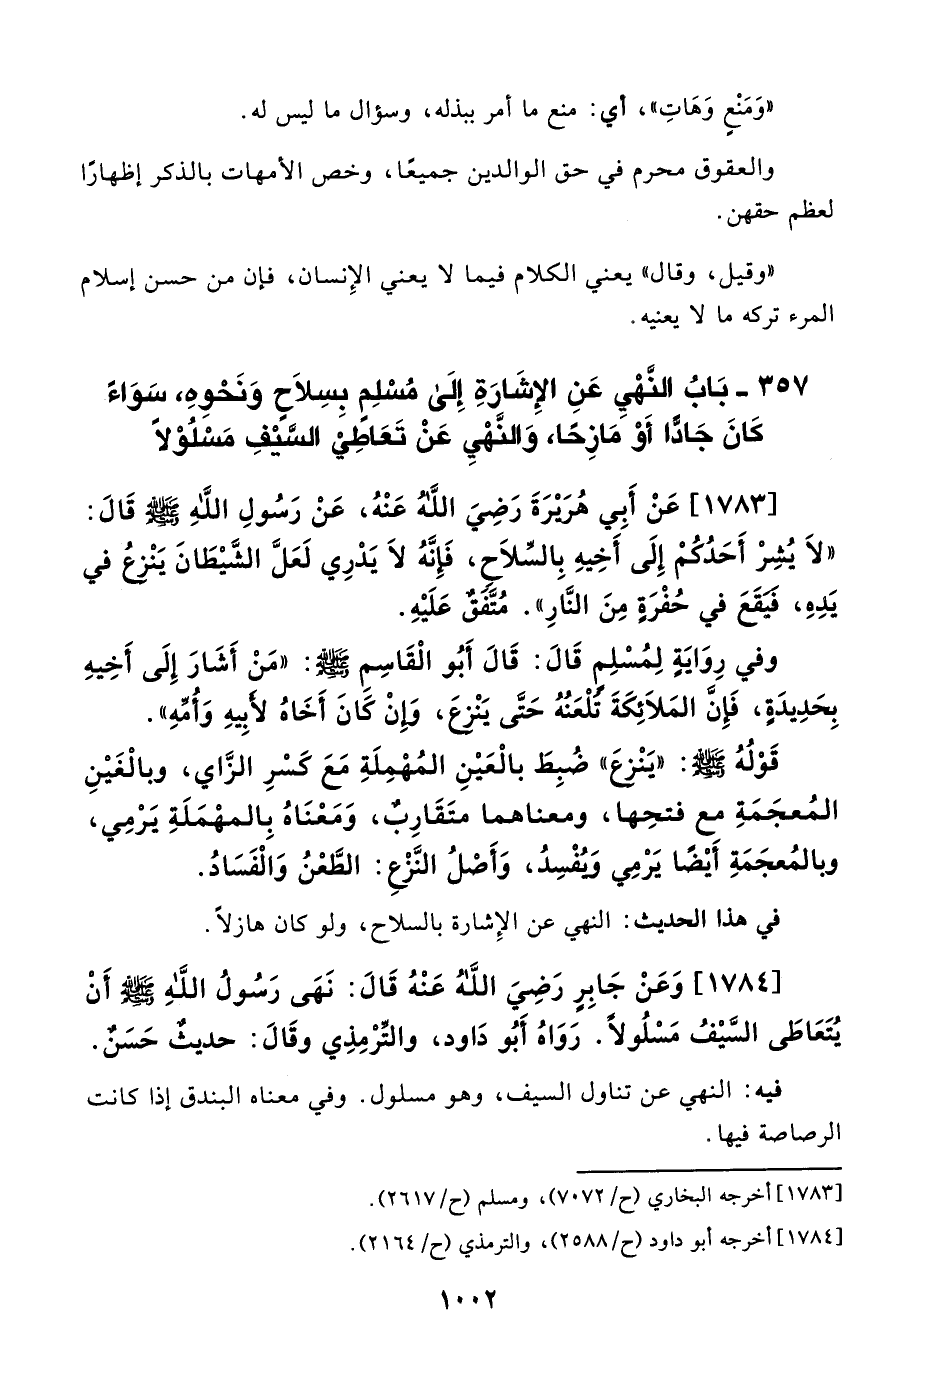 «وَمَنْعٍ وَهَاتِ»، أي: منع ما أمر ببذله، وسؤال ما ليس له.
والعقوق محرم في حق الوالدين جميعًا، وخص الأمهات بالذكر إظهارًا
لعظم حقهن.
«وقيل، وقال» يعني الكلام فيما لا يعني الإِنسان، فإن من حسن إسلام
المرء تركه ما لا يعنيه.
٣٥٧ - بَابُ النَّهْيِ عَنِ الإِشَارَةِ إِلَىٰ مُسْلِمٍ بِسِلاَحٍ وَنَحْوِهِ، سَوَاءً
كَانَ جَادًّا أَوْ مَازِحًا، وَالنَّهْيِ عَنْ تَعَاطِيْ السَّيْفِ مَسْلُوْلاً
[١٧٨٣] عَنْ أَبِي هُرَيْرَةَ رَضِيَ اللَّهُ عَنْهُ، عَنْ رَسُولِ اللَّهِ ﷺ قَالَ:
«لاَ يُشِرْ أَحَدُكُمْ إِلَى أَخِيهِ بِالسِّلاَحِ، فَإِنَّهُ لاَ يَدْرِي لَعَلَّ الشَّيْطَانَ يَنْزِعُ في
يَدِهِ، فَيَقَعَ في حُفْرَةٍ مِنَ النَّارِ». مُتَّفَقٌ عَلَيْهِ.
وفي رِوَايَةٍ لِمُسْلِمٍ قَالَ: قَالَ أَبُو الْقَاسِمِ ﷺ: «مَنْ أَشَارَ إِلَى أَخِيهِ
بِحَدِيدَةٍ، فَإِنَّ المَلاَئِكَةَ تَلْعَنُهُ حَتَّى يَنْزِعَ، وَإِنْ كَانَ أَخَاهُ لأَبِيهِ وَأُمِّهِ».
قَوْلُهُ ﷺ: «يَنْزِعَ» ضُبِطَ بالْعَيْنِ المُهْمِلَةِ مَعَ كَسْرِ الزَّاي، وبالْغَيْنِ
المُعجَمَةِ مع فتحِها، ومعناهما متَقَارِبٌ، وَمَعْنَاهُ بِالمهْمَلَةِ يَرْمِي،
وبالمُعجَمَةِ أَيْضًا يَرْمِي وَيُفْسِدُ، وَأَصْلُ النَّزْعِ: الطَّعْنُ وَالْفَسَادُ.
في هذا الحديث: النهي عن الإِشارة بالسلاح، ولو كان هازلاً.
[١٧٨٤] وَعَنْ جَابِرٍ رَضِيَ اللَّهُ عَنْهُ قَالَ: نَهَى رَسُولُ اللَّهِ ﷺ أَنْ
يُتَعَاطَى السَّيْفُ مَسْلُولاً. رَوَاهُ أَبُو دَاود، والتِّرْمِذِي وقَالَ: حديثٌ حَسَنٌ.
فيه: النهي عن تناول السيف، وهو مسلول. وفي معناه البندق إذا كانت
الرصاصة فيها.
[١٧٨٣] أخرجه البخاري (ح/٧٠٧٢)، ومسلم (ح/٢٦١٧).
[١٧٨٤] أخرجه أبو داود (ح/٢٥٨٨)، والترمذي (ح/٢١٦٤).
١٠٠٢